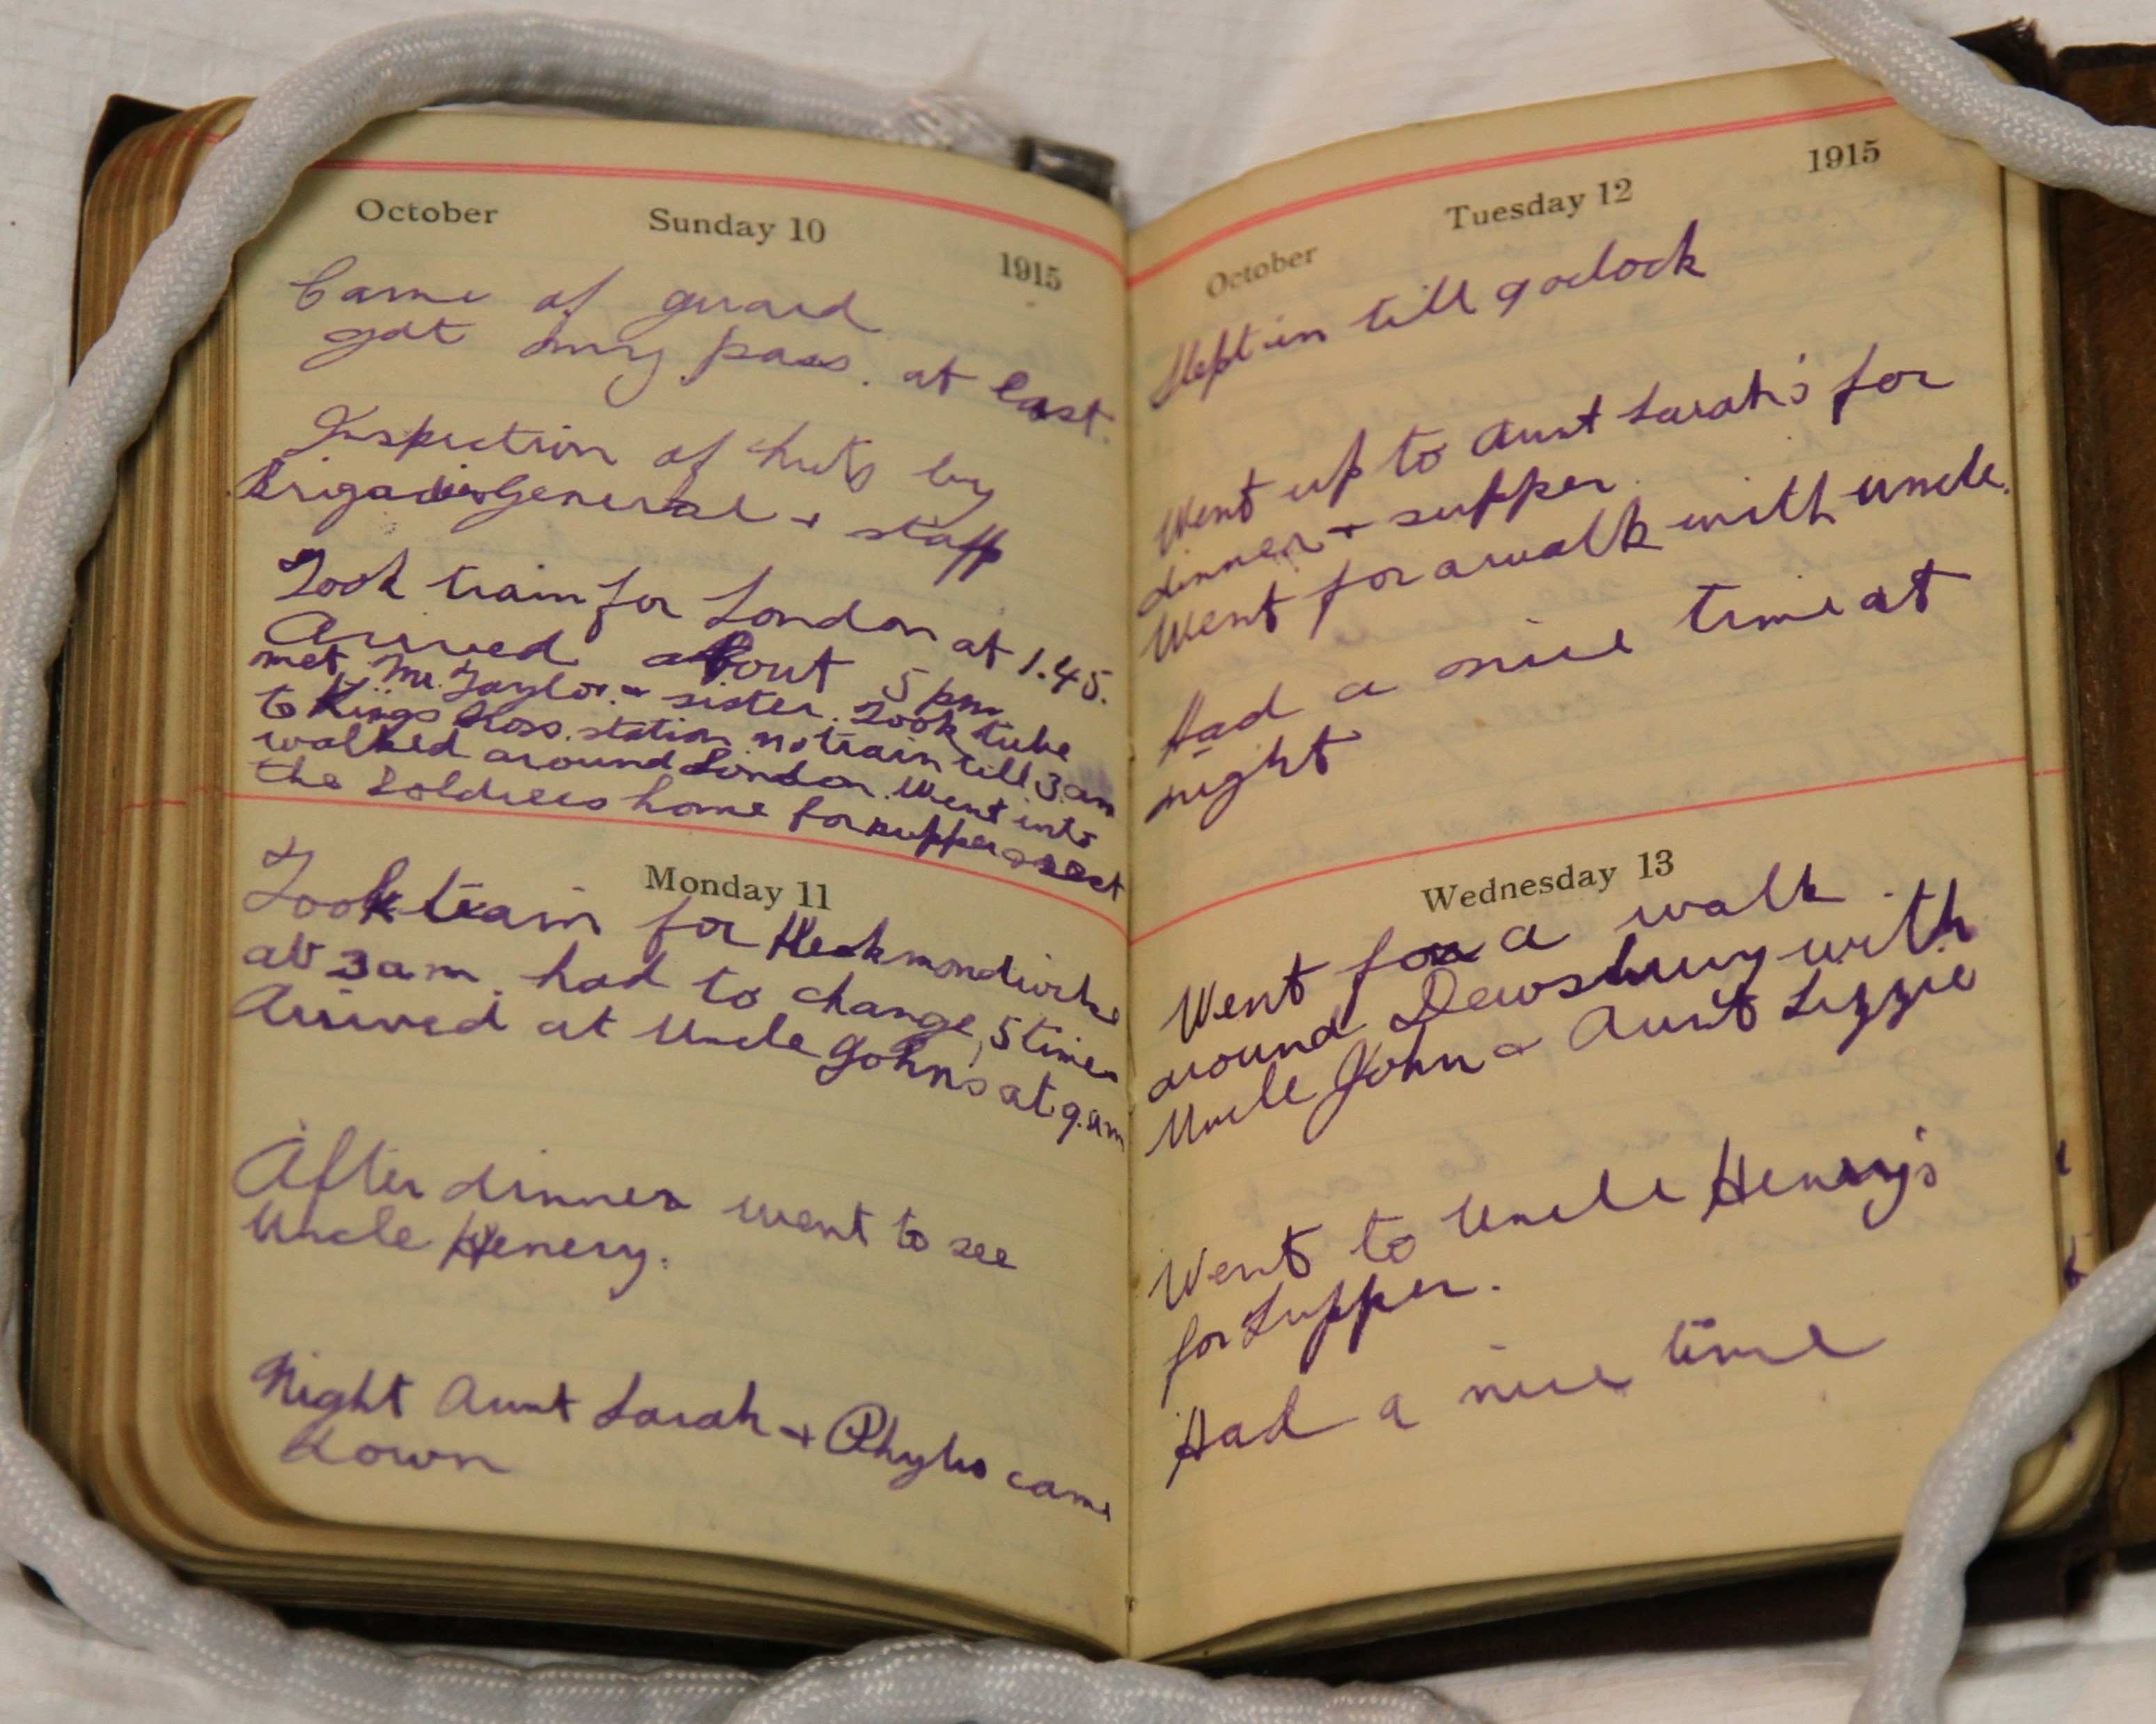 October Sunday 10 1915
Came of guard
got my pass. at last.
Inspection of huts by
Brigadier General + staff
Took train for London at 1.45.
Arrived about 5 pm
met Mr. Taylor + sister. Took tube
to Kings Cross station no train till 3.am
walked around London. Went into
the Soldiers home for supper + rest
Monday 11
Took train for Heckmondwike
at 3am. had to change, 5 times
Arrived at Uncle Johns at 9.am
After dinner went to see
Uncle Henery.
Night Aunt Sarah + Phylis came
down
October Tuesday 12 1915
Slept in till 9 oclock
Went up to Aunt Sarah's for
dinner + supper.
Went for a walk with uncle.
Had a nice time at
night
Wednesday 13
Went for a walk
around Dewsbury with
Uncle John + Aunt Lizzie
Went to Uncle Henry's
for Supper.
Had a nice time